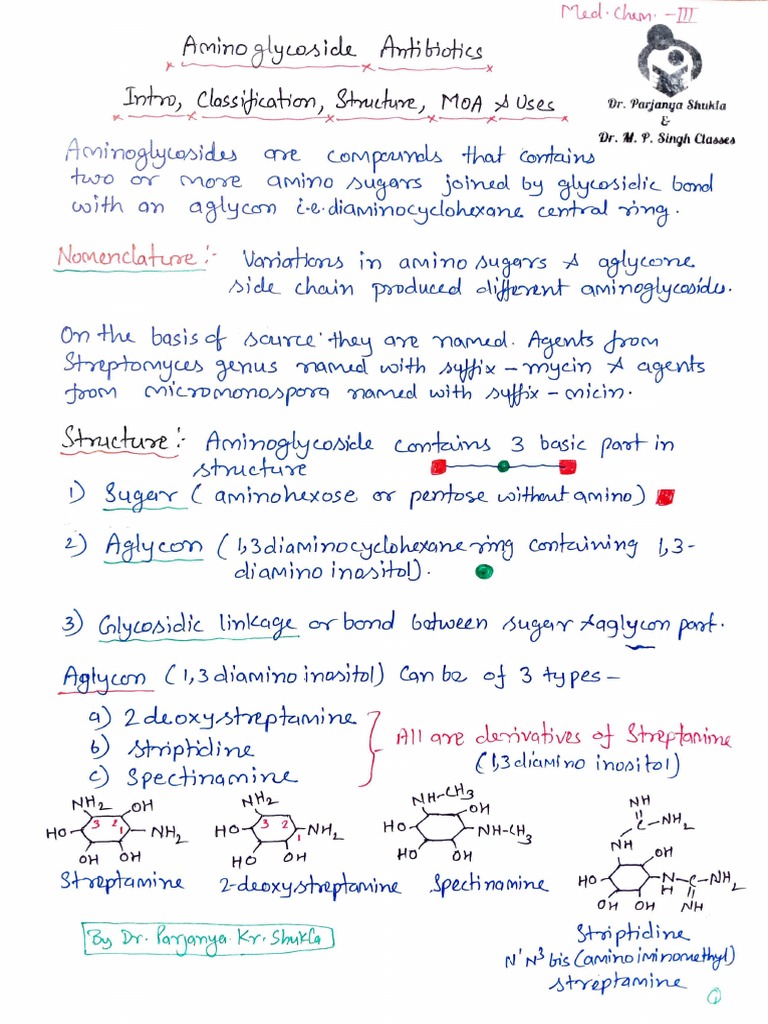 Med. Chem. - III
Aminoglycoside Antibiotics
Intro, Classification, Structure, MOA & Uses
Dr. Parjanya Shukla
&
Dr. M. P. Singh Classes
Aminoglycosides are compounds that contains
two or more amino sugars joined by glycosidic bond
with an aglycon i.e. diaminocyclohexane central ring.
Nomenclature:- Variations in amino sugars & aglycone
side chain produced different aminoglycosides.
On the basis of source they are named. Agents from
Streptomyces genus named with suffix - mycin & agents
from micromonospora named with suffix - micin.
Structure:- Aminoglycoside contains 3 basic part in
structure
1) Sugar (aminohexose or pentose without amino)
2) Aglycon (1,3 diaminocyclohexane ring containing 1,3-
diamino inositol).
3) Glycosidic linkage or bond between sugar & aglycon part.
Aglycon (1,3 diamino inositol) can be of 3 types -
a) 2 deoxystreptamine
b) Striptidine
c) Spectinamine
All are derivatives of Streptamine
(1,3 diamino inositol)
NH2 OH
HO 3 2 1 NH2
OH OH
Streptamine
NH2
HO 3 2 1 NH2
HO OH
2-deoxystreptamine
NH-CH3
OH
HO NH-CH3
HO OH
Spectinamine
NH
C-NH2
NH
OH
HO N-C-NH2
H
OH OH NH
Striptidine
N'N3 bis (amino iminomethyl)
streptamine
By Dr. Parjanya. Kr. Shukla
1